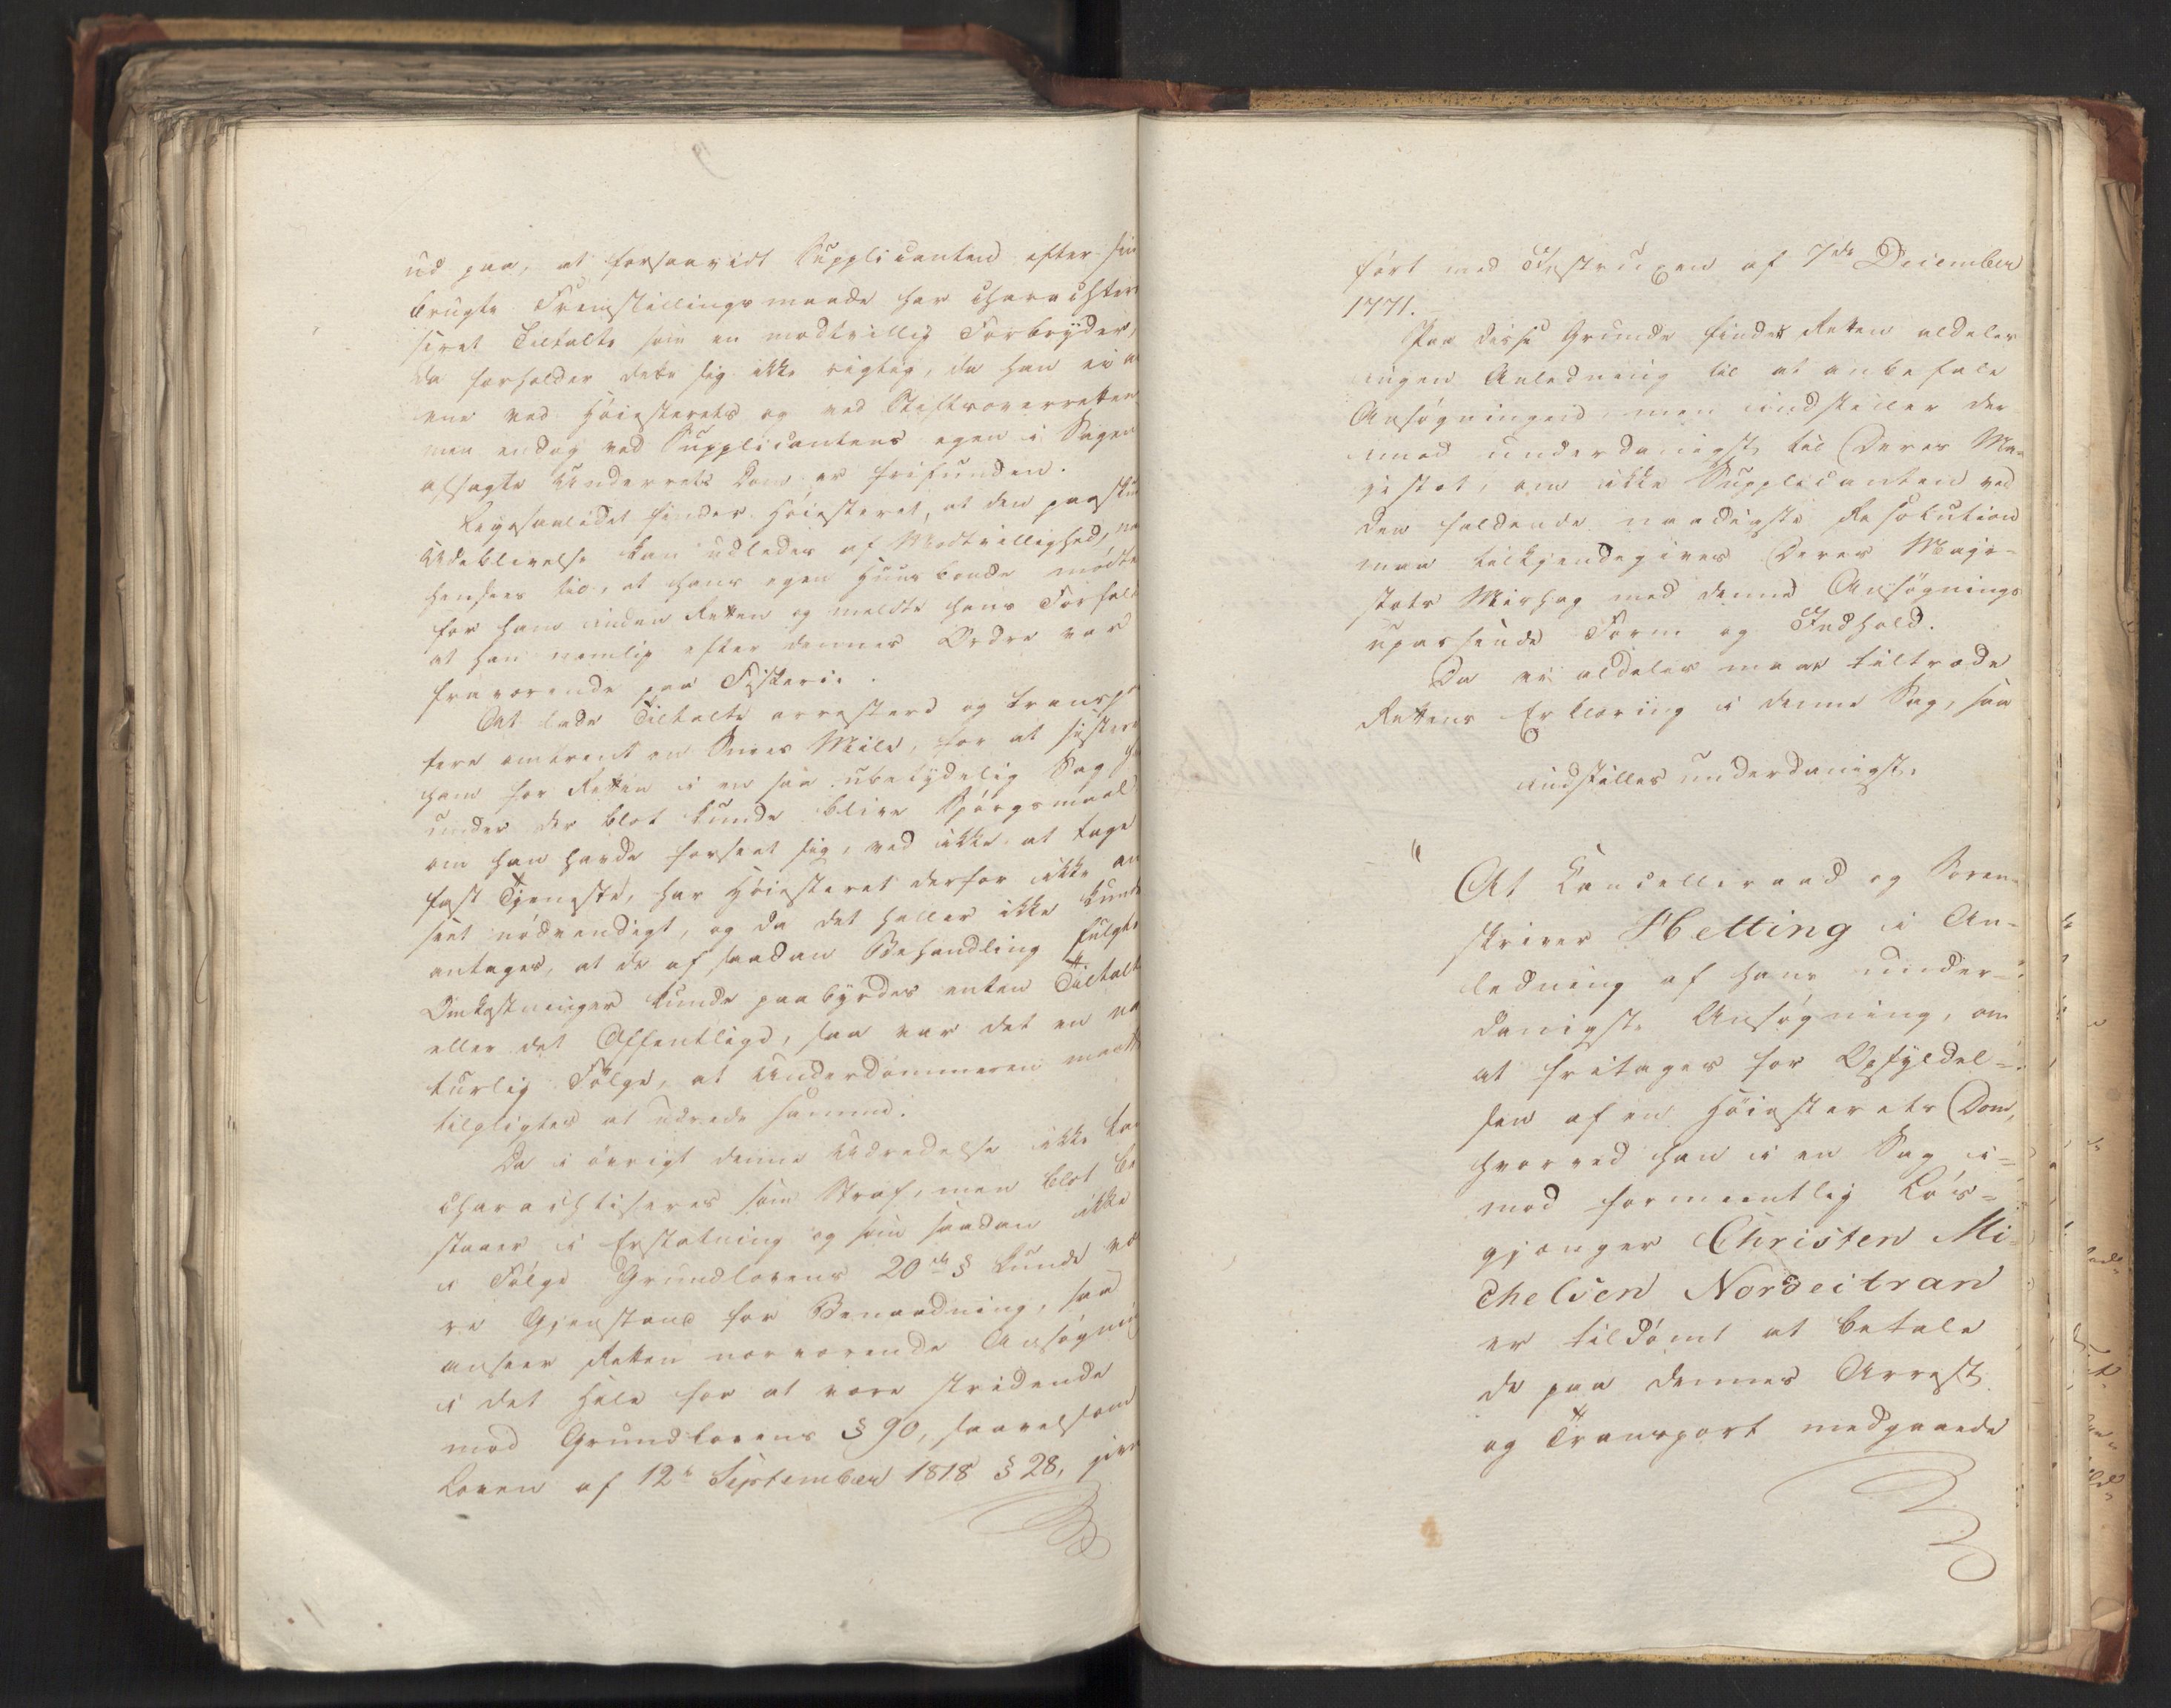 ud paa, at forsaavidt Supplicanten efter sin
brugte Fremstillingsmaade har charachteri
seret Tiltalte som en modtvillig Forbryder,
da forholder dette sig ikke rigtig, da han ei a
ene ved Høiesterets og ved Stiftsoverretten
men endog ved Supplicantens egen i Sagen
afsagte Underrets Dom er frifunden.
Ligesaalidet finder Høiesteret, at den paaskud
Udeblivelse kan udledes af Modtvillighed, na
henhees til, at hans egen Huusbonde mødte
for ham inden Retten og meldte hans Forfald
at han nemlig efter dennes Ordre var
fraværende paa Fiskerie.
At lade Tiltalte arrestere og transpo
tere omtrent en Snees Mile, for at sistere
ham for Retten i en saa ubetydelig Sag h
under der blot kunde blive Spørgsmaal
om han havde forseet sig, ved ikke at tage
fast Tjeneste, har Høiesteret derfor ikke an
seet nødvendigt, og da det heller ikke kunde
antages, at de af saadan Behandling fulgte
Omkostninger kunde paabyrdes enten Tiltalte
eller det Offentlige, saa var det en na
turlig Følge, at Underdommeren maatte
tilpligtes at udrede samme.
Da i øvrigt denne Udredelse ikke kan
charachtiseres som Straf, men blot be
staaer i Erstatning og som saadan ikke
i Følge Grundlovens 20de § kunde væ
re Gjenstand for Benaadning, saa
anseer Retten nærværende Ansøgning
i det Hele for at være stridende
mod Grundlovens § 90, saavelsom
Loven af 12te September 1818 § 28, jevn
ført med Instruxen af 7de December
1771.
Paa disse Grunde finder Retten aldeles
ingen Anledning til at anbefale
Ansøgningen men indstiller der
imod underdanigst til Deres Ma-
jestæt, om ikke Supplicanten ved
den faldende naadigste Resolution
maa tilkjendegives Deres Maje-
stæts Mishag med denne Ansøgnings
upassende Form og Indhold.
Da vi aldeles maae tiltræde
Rettens Erklæring i denne Sag, saa
indstilles underdanigst:
"At Cancelleraad og Soren-
skriver Hetting i An-
ledning af hans under-
danigste Ansøgning, om
at fritages for Opfyldel-
sen af en Høiesterets Dom,
hvorved han i en Sag i-
mod formeentlig Løs-
gjænger Christen Mi-
chelsen Nordeitran
er tildømt at betale
de paa dennes Arrest
og Transport medgaaede